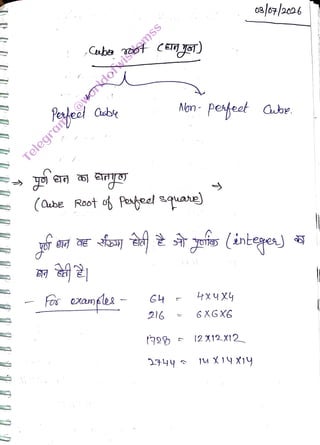 03/07/2026
Cube root (घनमूल)
Perfect Cube
Non-perfect Cube.
Telegram @worldofwisdomss
⇒ पूर्ण घन का घनमूल →
(Cube Root of Perfect square)
पूर्ण घन वह संख्या होती है जो पूर्णांक (integer) का
घन होती है|
- For examples - 64 = 4X4X4
216 = 6X6X6
1728 = 12X12X12
2744 = 14X14X14